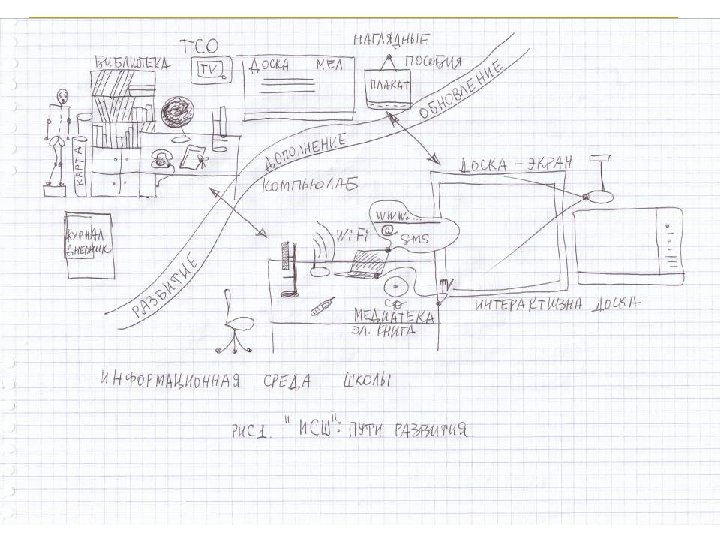 НАГЛЯДНЫЕ
ПОСОБИЯ
ТСО
БИБЛИОТЕКА
TV
ДОСКА МЕЛ
ПЛАКАТ
КАРТА
ЖУРНАЛ
РАЗВИТИЕ
ДОПОЛНЕНИЕ
ОБНОВЛЕНИЕ
КОМПЬЮЛАБ
ДОСКА - ЭКРАН
WiFi
WWW.
@ SMS
TV
CD
МЕДИАТЕКА
ЭЛ. КНИГА
ИНТЕРАКТИВНА ДОСКА
ИНФОРМАЦИОННАЯ СРЕДА ШКОЛЫ
РИС 1. "ИСШ": ПУТИ РАЗВИТИЯ